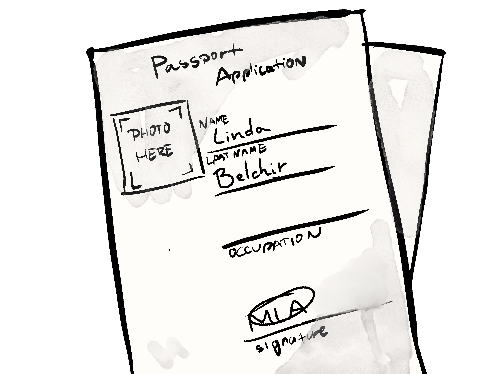 Passport
Application
PHOTO
HERE
NAME
Linda
LAST NAME
Belchir
OCCUPATION
MIA
signature